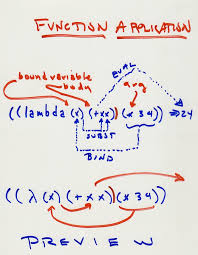 FUNCTION APPLICATION
EVAL
bound variable
body
arg
((lambda (x) (+xx)) (x 3 4)) => 24
SUBST
BIND
((λ (x) (+ x x)) (x 3 4))
PREVIEW